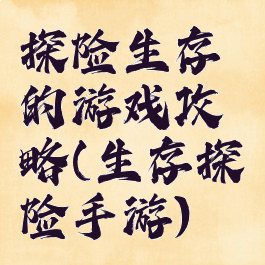 探险生存
的游戏攻
略(生存探
险手游)